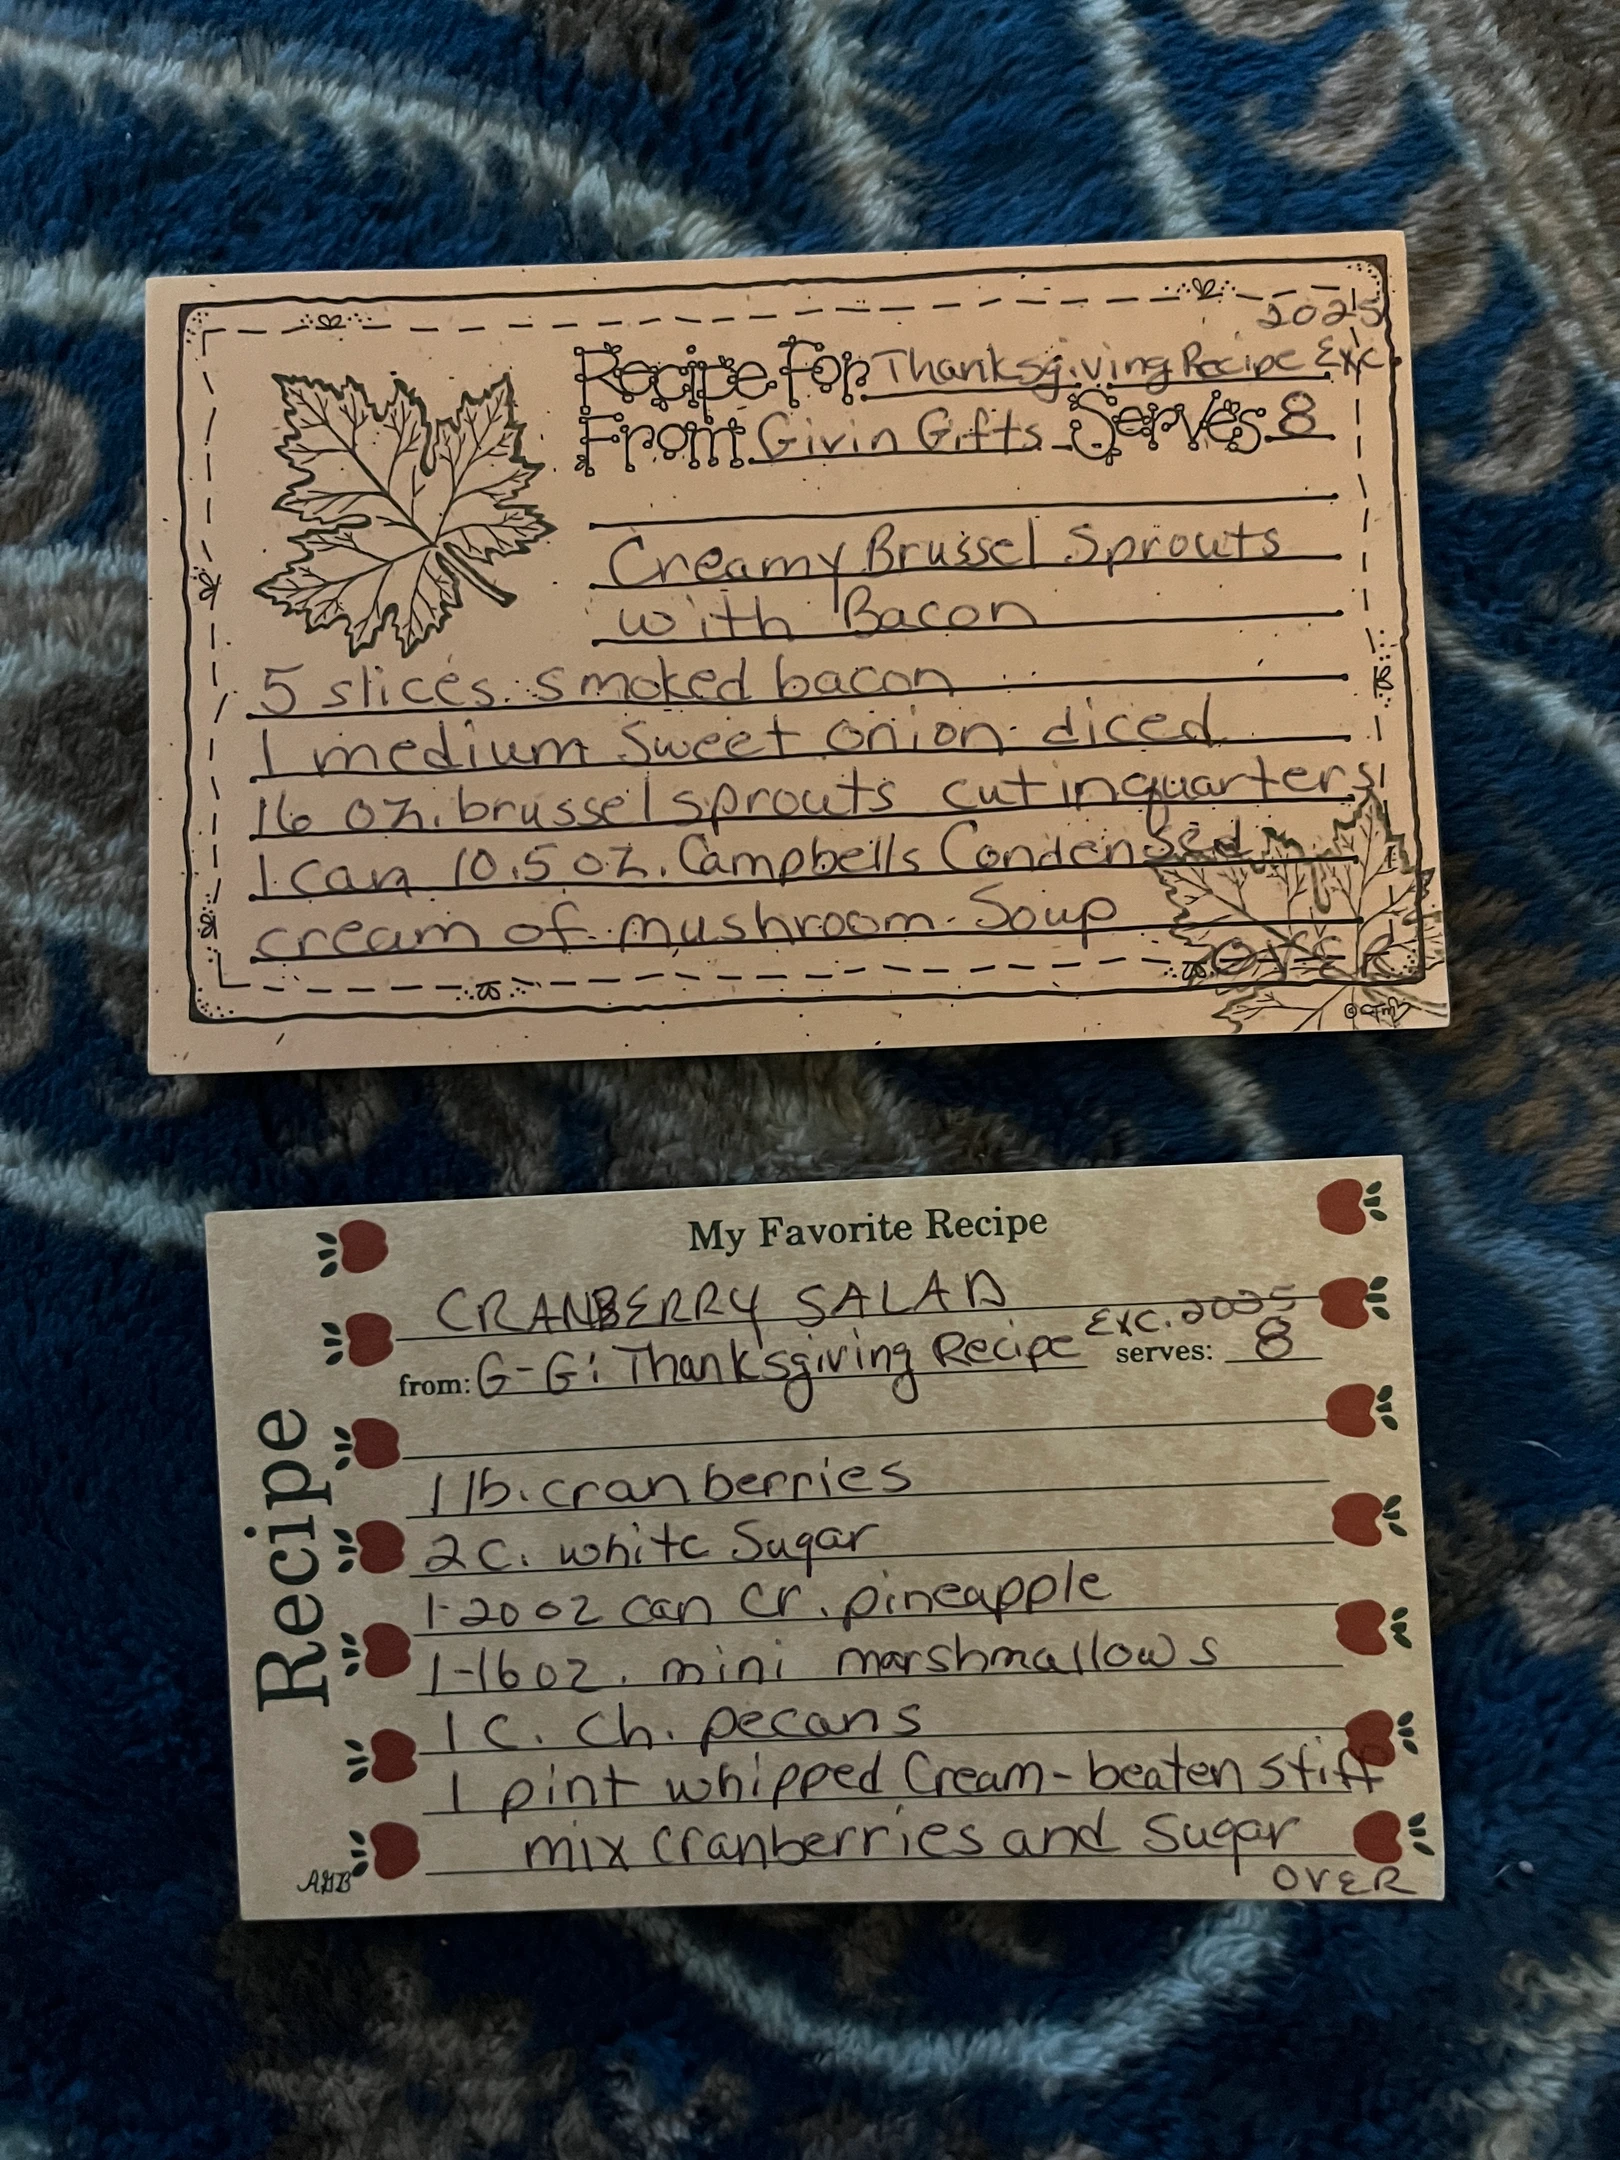 2025
Recipe For Thanksgiving Recipe Exc.
From Givin Gifts Serves 8
Creamy Brussel Sprouts
with Bacon
5 slices smoked bacon
1 medium Sweet onion diced
16 oz. brussel sprouts cut in quarters
1 can 10.5 oz. Campbells Condensed
cream of mushroom Soup
OVER
My Favorite Recipe
CRANBERRY SALAD
Exc. 2025
from: G-G: Thanksgiving Recipe serves: 8
Recipe
1 lb. cranberries
2 c. white Sugar
1-20 oz can cr. pineapple
1-16 oz. mini marshmallows
1 C. Ch. pecans
1 pint whipped Cream - beaten stiff
mix cranberries and Sugar
OVER